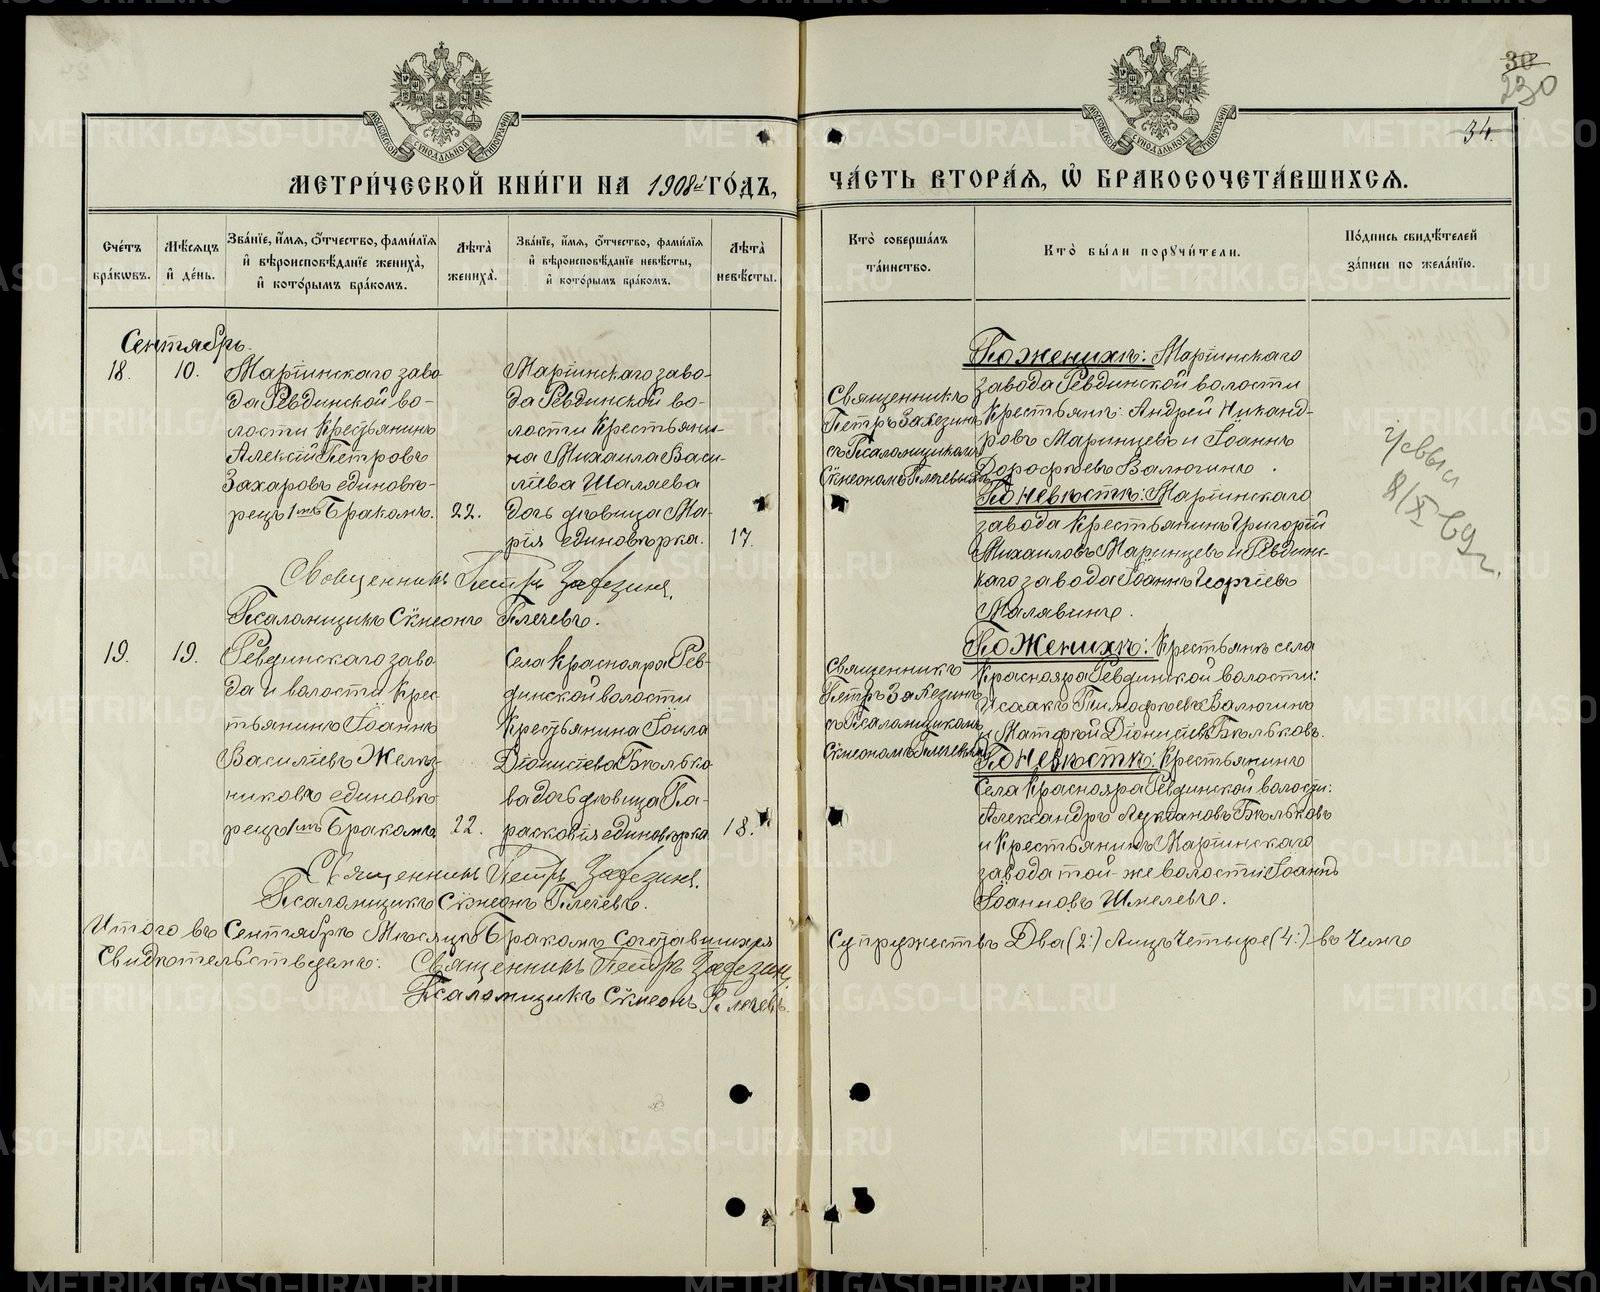 30
230
34.
МОСКОВСКОЙ СѴНОДАЛЬНОЙ ТИПОГРАФІИ
МОСКОВСКОЙ СѴНОДАЛЬНОЙ ТИПОГРАФІИ
МЕТРИ́ЧЕСКОЙ КНИ́ГИ НА 1908й ГО́ДЪ,
ЧА́СТЬ ВТОРА́Ѧ, Ѡ҆ БРАКОСОЧЕТА́ВШИХСѦ.
Сче́тъ бра́кѡвъ.
Мѣ́сяцъ и҆ де́нь.
Зва́нїе, и҆́мѧ, ѻ҆́тчество, фами́лїѧ и҆ вѣроисповѣ́данїе жениха̀, и҆ кото́рымъ бра́комъ.
Лѣта̀ жениха̀.
Зва́нїе, и҆́мѧ, ѻ҆́тчество, фами́лїѧ и҆ вѣроисповѣ́данїе невѣ́сты, и҆ кото́рымъ бра́комъ.
Лѣта̀ невѣ́сты.
Кто̀ соверша́лъ та́инство.
Кто̀ бы́ли порꙋчи́тели.
По́дпись свидѣ́телей за́писи по жела́нїю.
Сентябрь.
18.
10.
Маріинскаго заво
да Ревдинской во-
лости крестьянинъ
Алексій Петровъ
Захаровъ единовѣ-
рецъ 1мъ бракомъ.
22.
Маріинскаго заво-
да Ревдинской во-
лости крестьяни-
на Михаила Васи-
ліева Шаляева
дочь дѣвица Ма-
рія единовѣрка.
17.
Священникъ
Петръ Заѳезинъ
съ Псаломщикомъ
Сѵмеономъ Плечевымъ
По женихѣ: Маріинскаго
завода Ревдинской волости
крестьянѣ: Андрей Никанд-
ровъ Маринцевъ и Іоаннъ
Дороѳѣевъ Валюгинъ.
По невѣстѣ: Маріинскаго
завода крестьянинъ Григорій
Михаиловъ Маринцевъ и Ревдинс-
каго завода Іоаннъ Георгіевъ
Малявинъ.
8/X-69г.
Священникъ Петръ Заѳезинъ.
Псаломщикъ Сѵмеонъ Плечевъ.
19.
19.
Ревдинскаго заво
да и волости крес
тьянинъ Іоаннъ
Василіевъ Желѣз
никовъ единовѣ
рецъ 1мъ бракомъ.
22.
Села Краснояра Рев-
динской волости
крестьянина Іоила
Діонисіева Бѣлько
ва дочь дѣвица Па-
расковія единовѣрка
18.
Священникъ
Петръ Заѳезинъ
съ Псаломщикомъ
Сѵмеономъ Плечевымъ
По женихѣ: Крестьянѣ села
Краснояра Ревдинской волости:
Исаакъ Тимоѳѣевъ Валюгинъ
и Матѳей Діонисіевъ Бѣльковъ.
По невѣстѣ: Крестьянинъ
села Краснояра Ревдинской волости:
Александръ Лукіановъ Бѣльковъ
и крестьянинъ Маріинскаго
завода той-же волости Іоаннъ
Іоанновъ Шмелевъ.
Священникъ Петръ Заѳезинъ.
Псаломщикъ Сѵмеонъ Плечевъ.
Итого въ Сентябрѣ Мѣсяцѣ бракомъ сочетавшихся
супружествъ Два (2:) лицъ четыре (4:) въ чемъ
Свидѣтельствуемъ: Священникъ Петръ Заѳезинъ
Псаломщикъ Сѵмеонъ Плечевъ.
METRIKI.GASO-URAL.RU